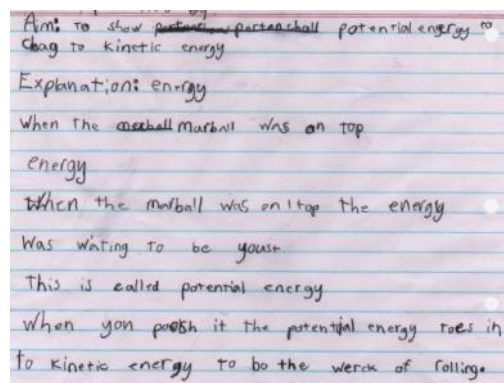 Aim: to show potential energy to
chag to kinetic energy
Explanation: energy
When the marball was on top
energy
When the marball was on top the energy
was wating to be youst
This is called potential energy
When you poosh it the potential energy toes in
to kinetic energy to bo the werck of rolling.